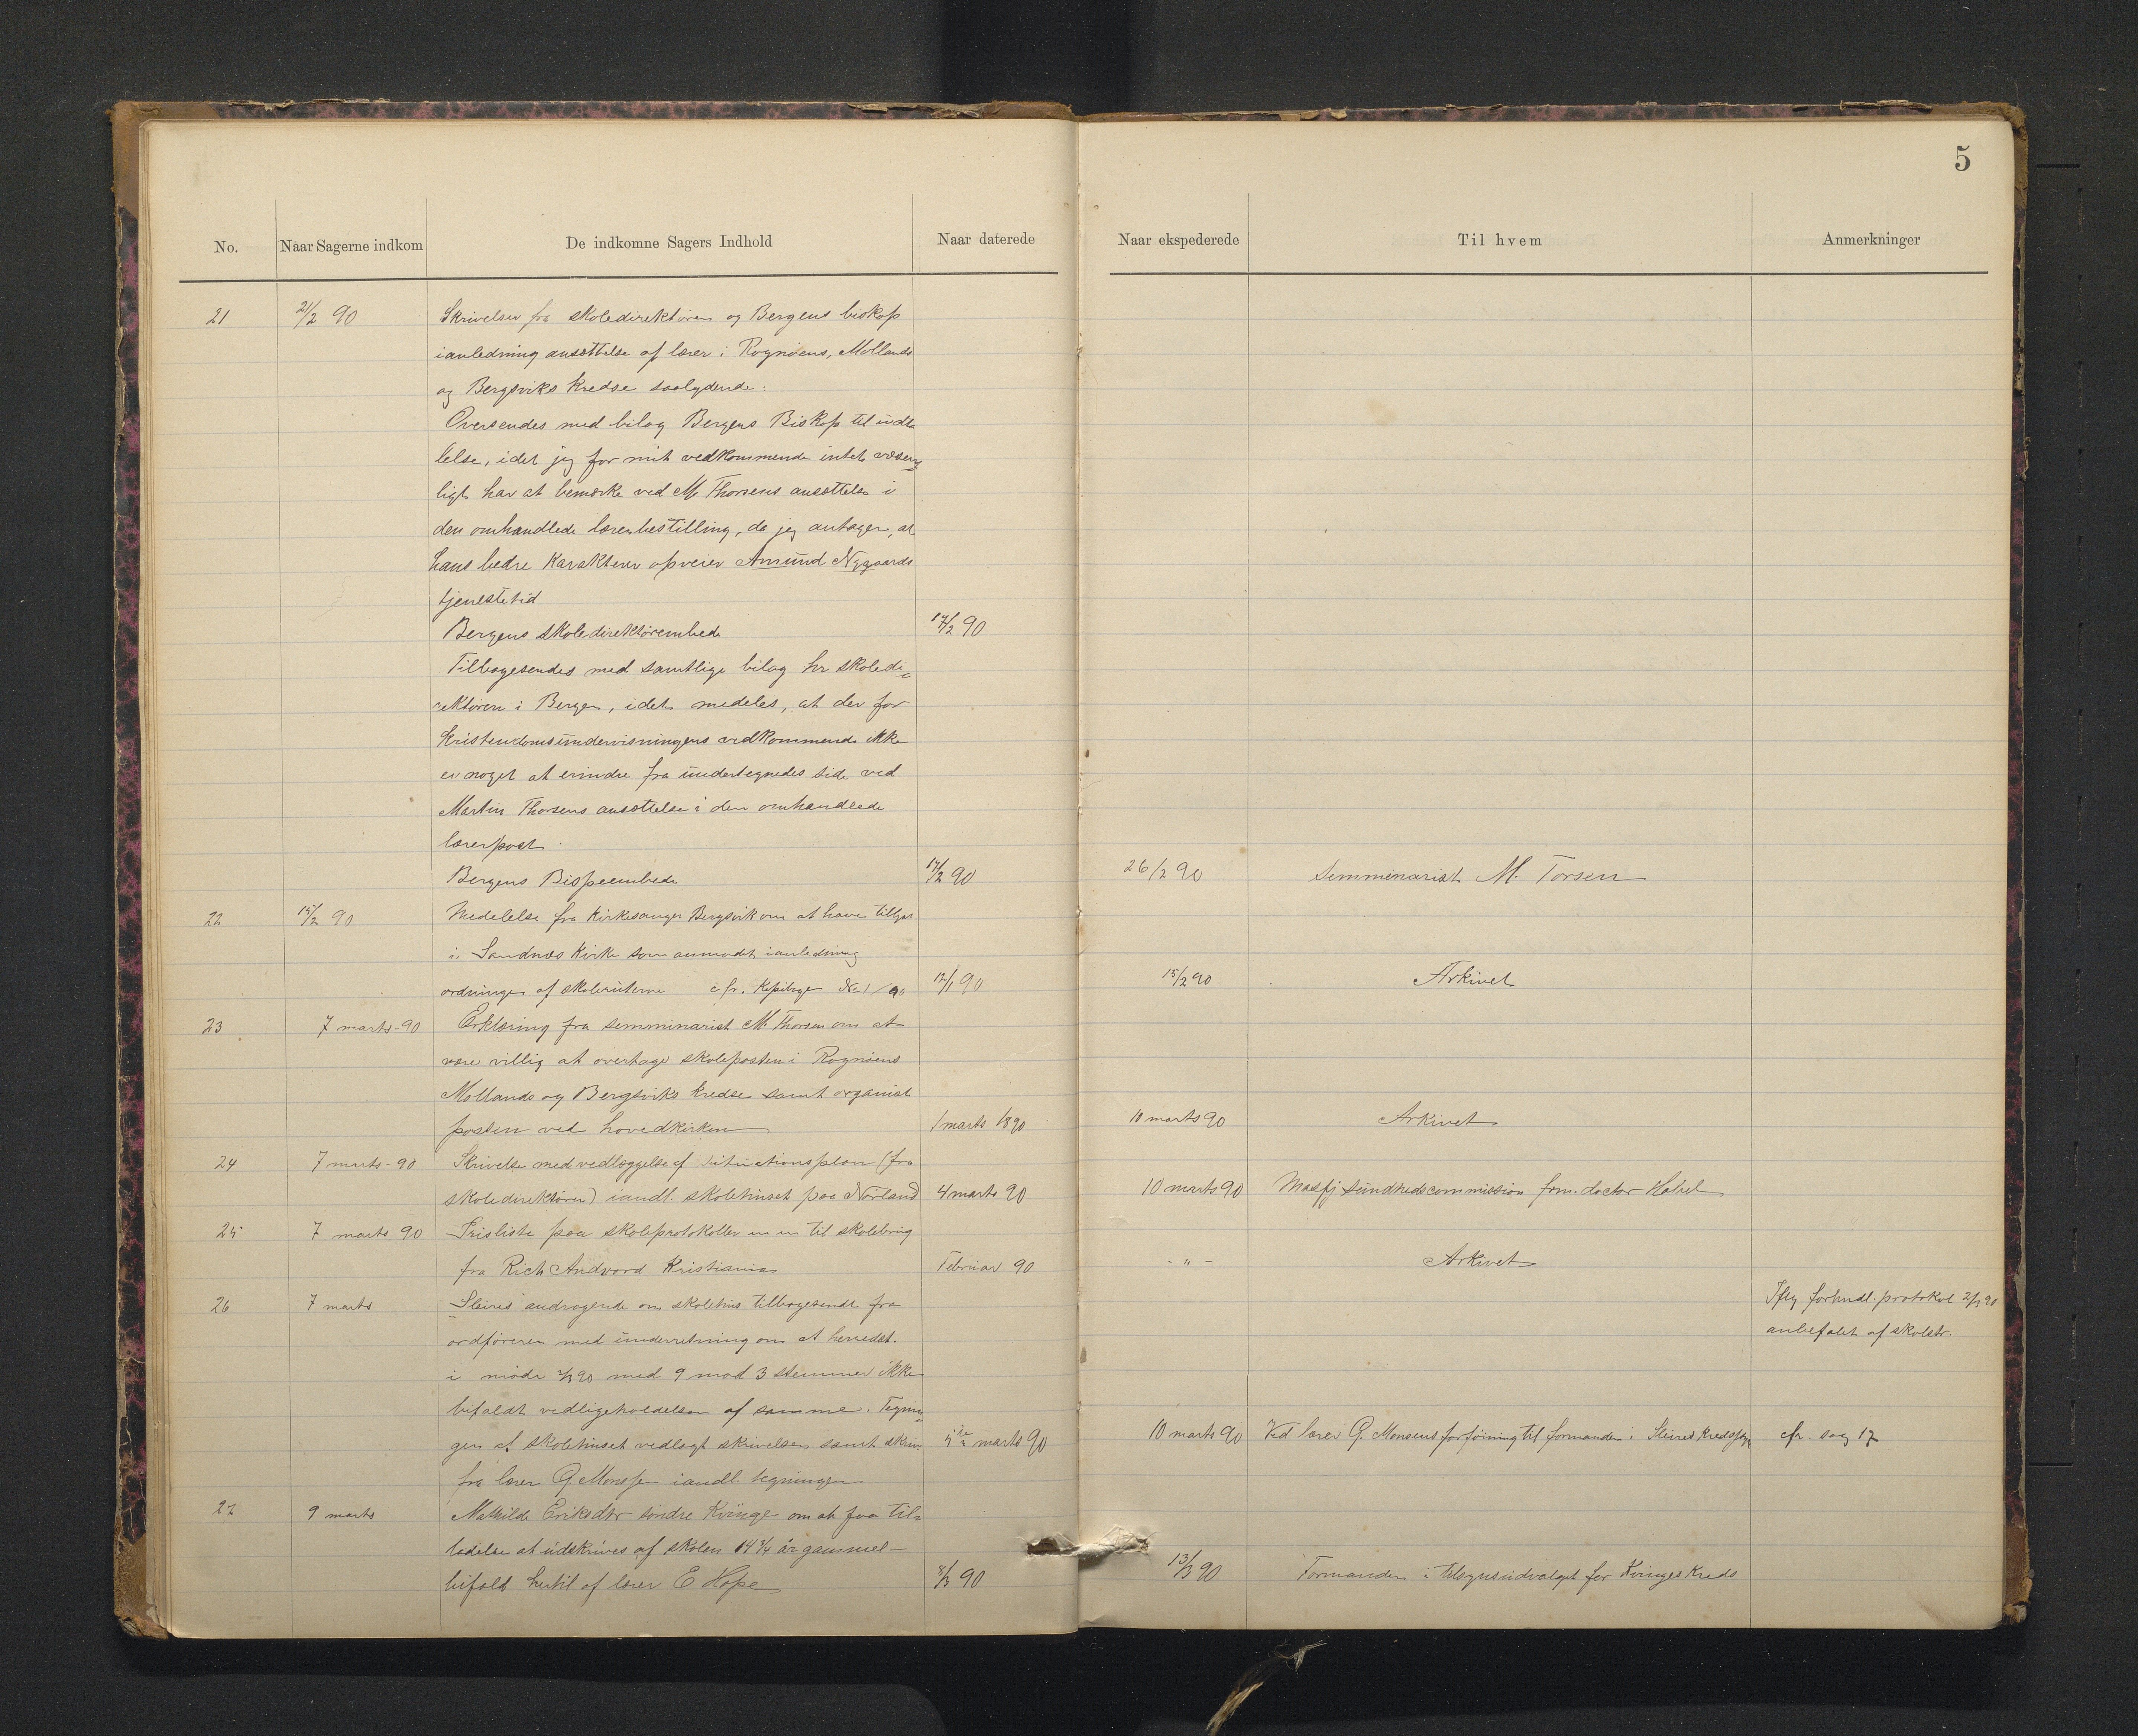 5
No. Naar Sagerne indkom De indkomne Sagers Indhold Naar daterede Naar ekspederede Til hvem Anmerkninger
21 21/2 90 Skrivelser fra skoledirektøren og Bergens biskop
i anledning ansættelse af lærer i Rognøens, Mollands
og Bergsviks kredse saalydende:
Oversendes med bilag Bergens Biskop til udta
lelse, idet jeg for mit vedkommende intet væsent
ligt har at bemærke ved M. Thorsens ansættelse i
den omhandlede lærerbestilling, da jeg antager, at
hans bedre karakterer opveier Amund Nygaards
tjenestetid
Bergens skoledirektørembede 14/2 90
Tilbagesendes med samtlige bilag hr skoledi-
rektøren i Bergen, idet meddeles, at der for
kristendomsundervisningens vedkommende ikke
er noget at erindre fra undertegnedes side ved
Martin Thorsens ansættelse i den omhandlede
lærerpost.
Bergens Bispeembede 17/2 90 26/2 90 semmenarist M. Torsen
22 15/2 90 Medelelse fra Kirkesanger Bergsvik om at have tillyst
i Sandnes Kirke som anmodet i anledning
ordningen af skoleruterne cfr. Kopibogen No 1/90 12/1 90 15/2 90 Arkivet
23 7 marts-90 Erklæring fra semminarist M. Thorsen om at
være villig at overtage skoleposten i Rognøens
Mollands og Bergsviks kredse samt organist
posten ved hovedkirken 1 marts 1890 10 marts 90 Arkivet
24 7 marts-90 Skrivelse med vedlæggelse af situationsplan (fra
skoledirektøren) i andl. skolehuset paa Nørland 4 marts 90 10 marts 90 Masfj sundhedscommission frm. doctor Habel
25 7 marts 90 Prisliste paa skoleprotokoller m m til skolebrug
fra Rich Andvord Kristiania Februar 90 - " - Arkivet
26 7 marts Sleires andragende om skolehus tilbagesendt fra Iflg forhndl. protokol 2/3 90
ordføreren med underretning om at herredst. anbefalet af skolstr.
i møde 4/3 90 med 9 mod 3 stemmer ikke
bifaldt vedligeholdelsen af samme. Tegnin
gen af skolehuset vedlagt skrivelsen samt skriv 5te marts 90 10 marts 90 Ved lærer G. Monsens forføining til formanden i Sleires kreds cfr. sag 17
fra lærer G. Monsen i andl. tegningen
27 9 marts Mathilde Eriksdtr søndre Kvinge om at faa til-
ladelse at udskrives af skolen 14 3/4 år gammel -
bifaldt hertil af lærer E Hope 8/3 90 13/3 90 Formanden i tilsynsudvalget for Kvinges kreds